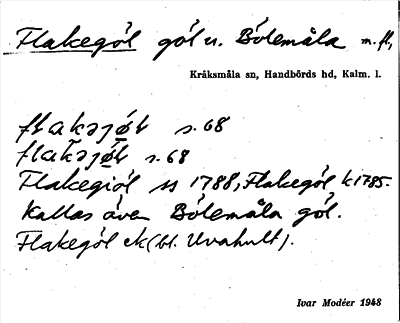 Flakegöl göl u. Bölemåla m. fl.,
Kråksmåla sn, Handbörds hd, Kalm. l.
flakəjøl s. 68
flakəjøl s. 68
Flakegiöl ss 1788, Flakegöl k 1785.
Kallas även Bölemåla göl.
Flakegöl ek (bl. Uvahult).
Ivar Modéer 1948